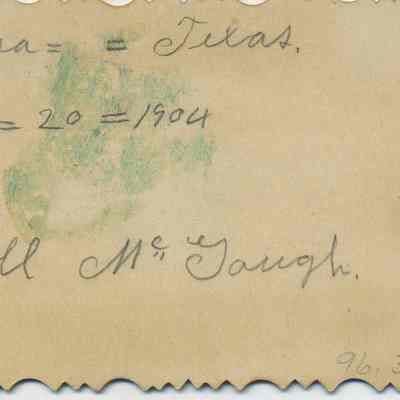 na = = Texas.
= 20 = 1904
ll Mc Gough.
96.3